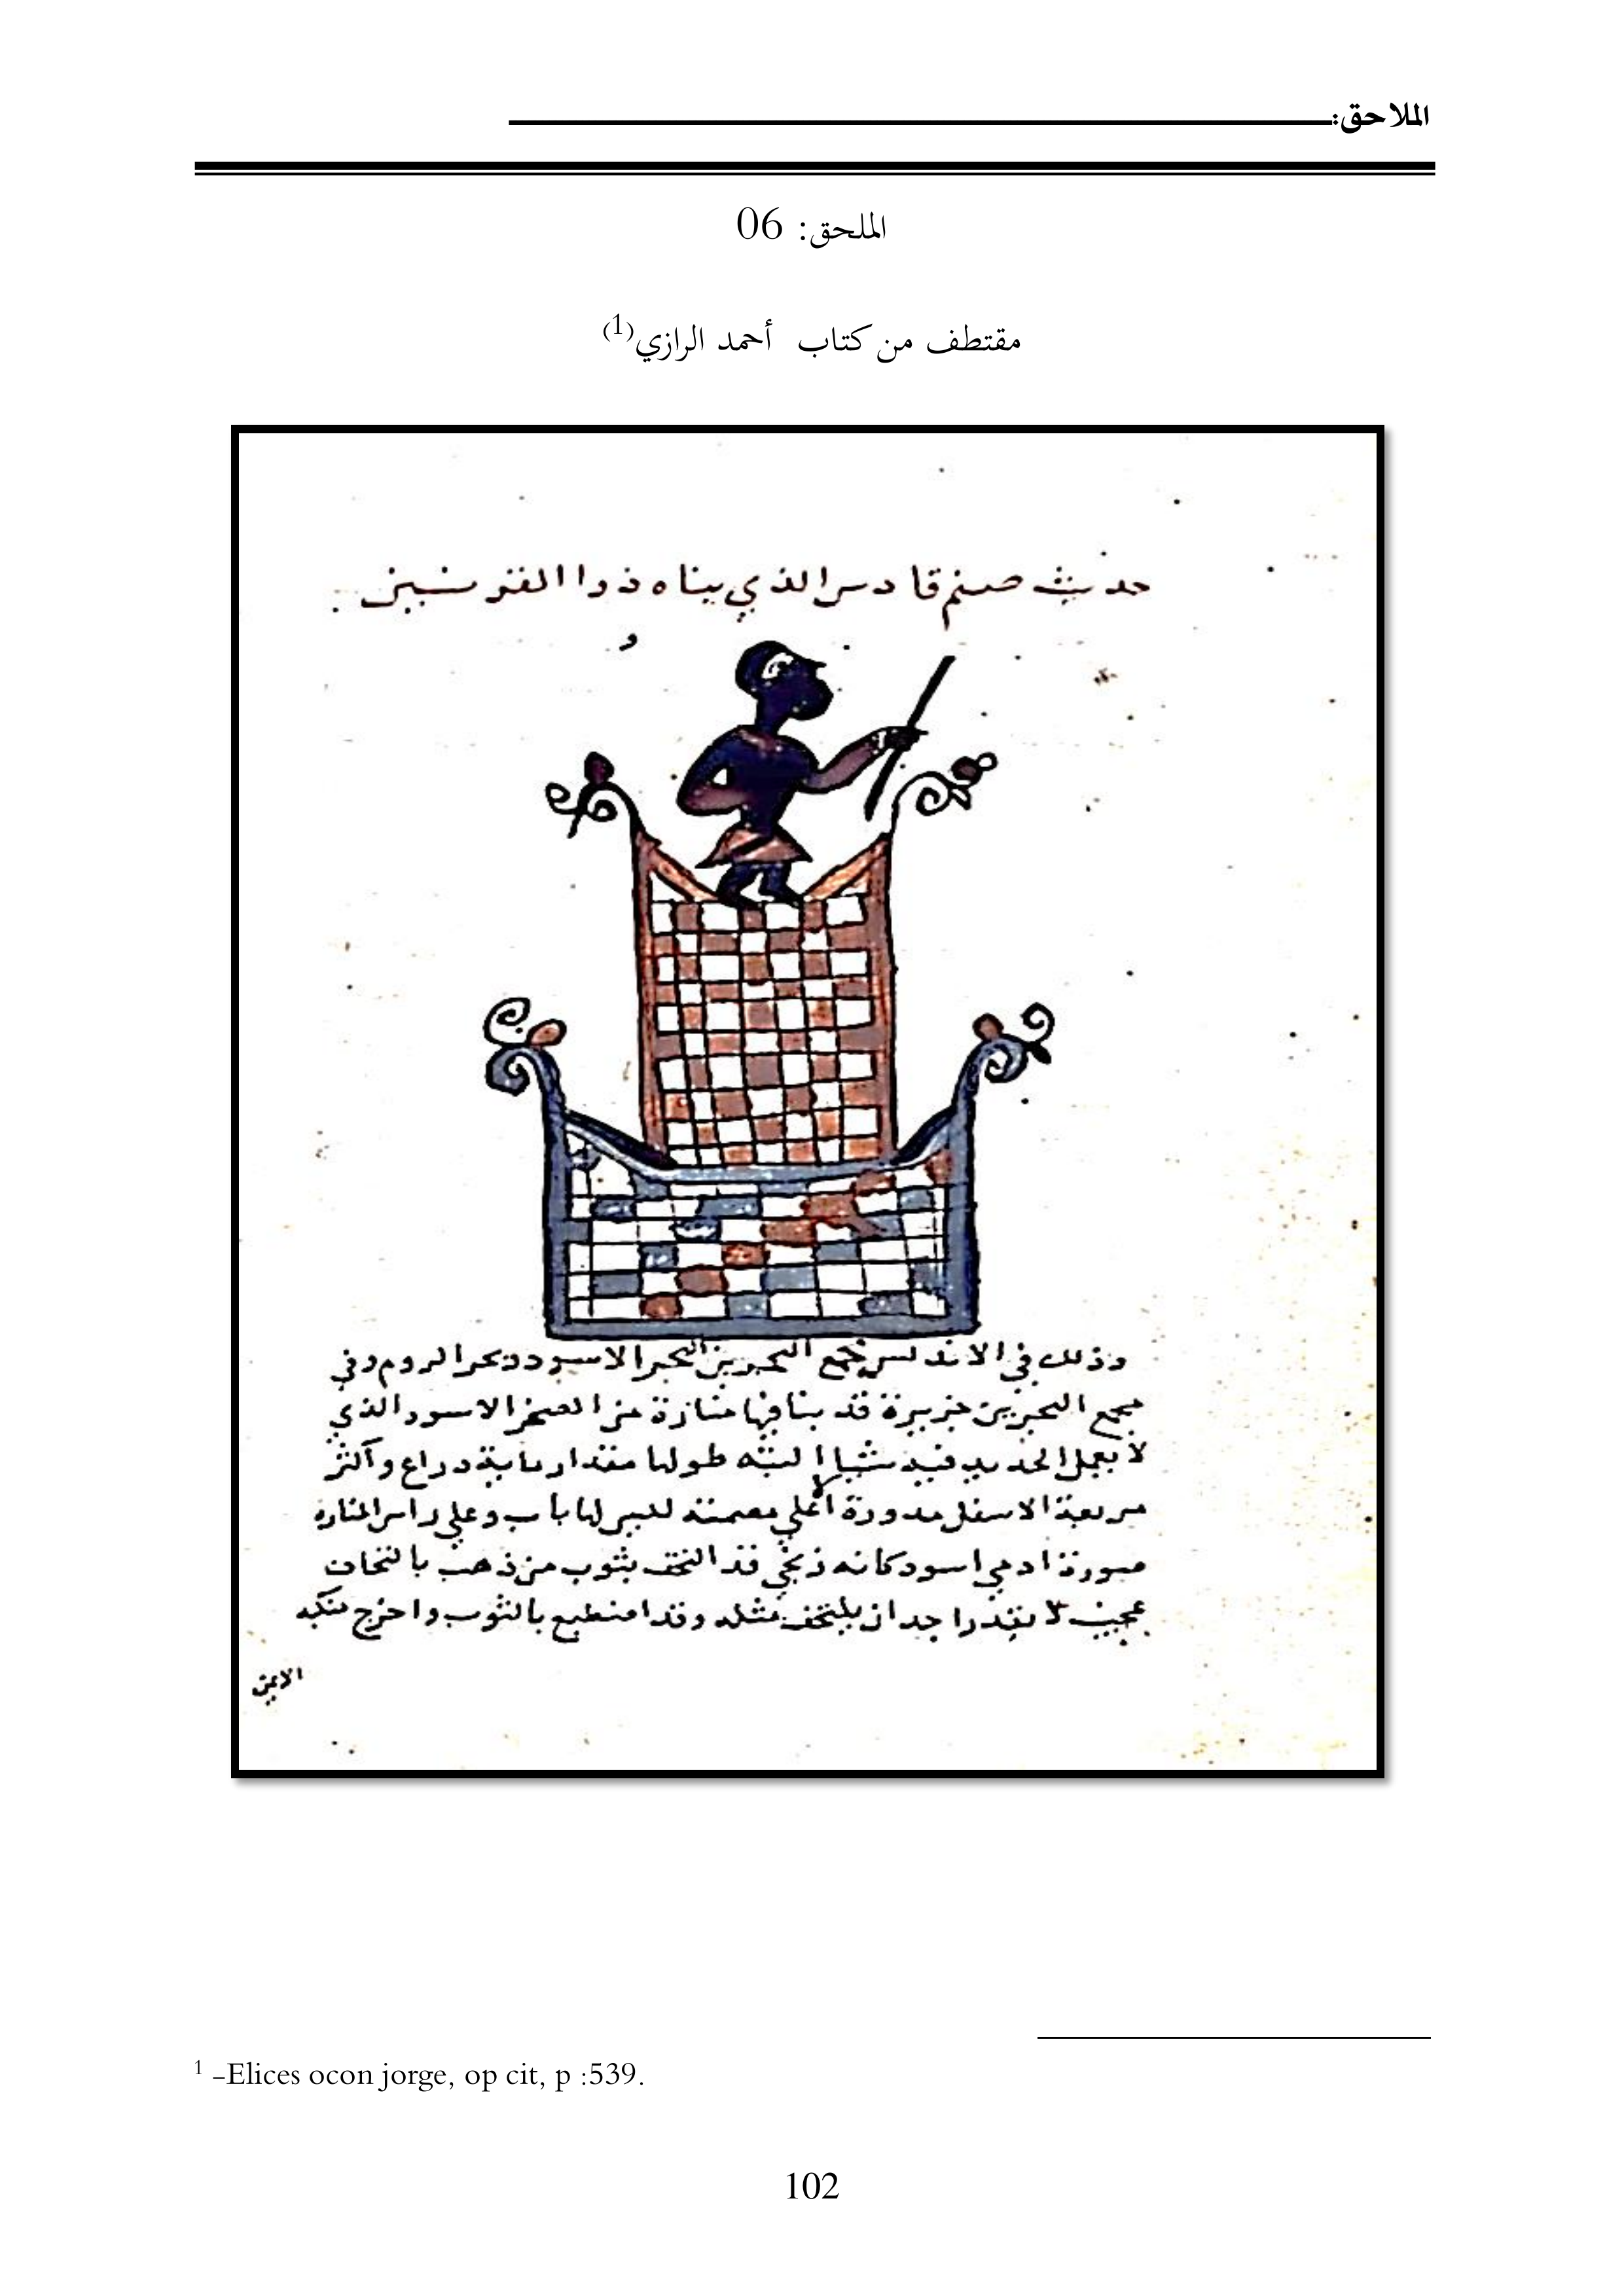 الملاحق:
الملحق: 06
مقتطف من كتاب أحمد الرازي(1)
حديث صنم قادس الذي بناه ذوا القرنين
وذلك في الاندلس مجمع البحرين البحر الاسود وبحر الروم وفي
مجمع البحرين جزيرة قد بنا فيها منارة من الصخر الاسود الذي
لا يعمل الحديد فيه شيا البته طولها مقدار ماية دراع وآكثر
مربعة الاسفل مدورة اعلي مصمتة ليس لها باب وعلي راس المنارة
صورة ادمي اسود كانه زنجي قد التحف بثوب من ذهب بالتحاف
عجيب لا يقدر احد ان يلتحف مثله وقد بالثوب واخرج منكبه
الايمن
1 -Elices ocon jorge, op cit, p :539.
102